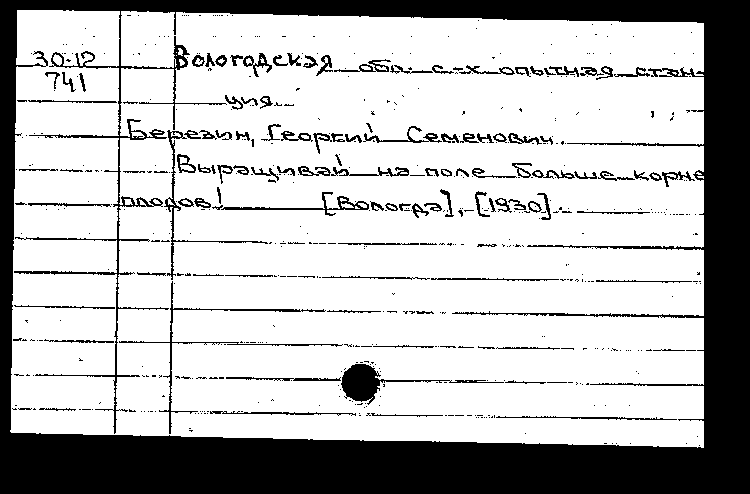 30-12 Вологодская обл. с.-х опытная стан-
741
ция.
Березин, Георгий Семенович.
Выращивай на поле больше корне
плодов! [Вологда], [1930].